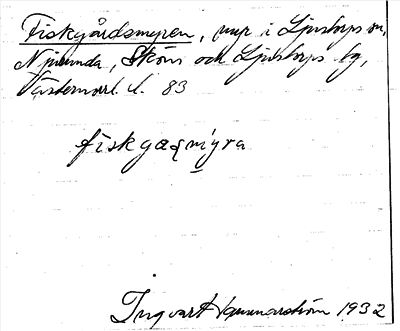 Fiskgårdsmyren, myr i Ljustorps sn,
Njurunda, Sköns och Ljustorps tg,
Västernorrl. l. 83
fiskgaɖmýra
Ingvart Hammarström 1932